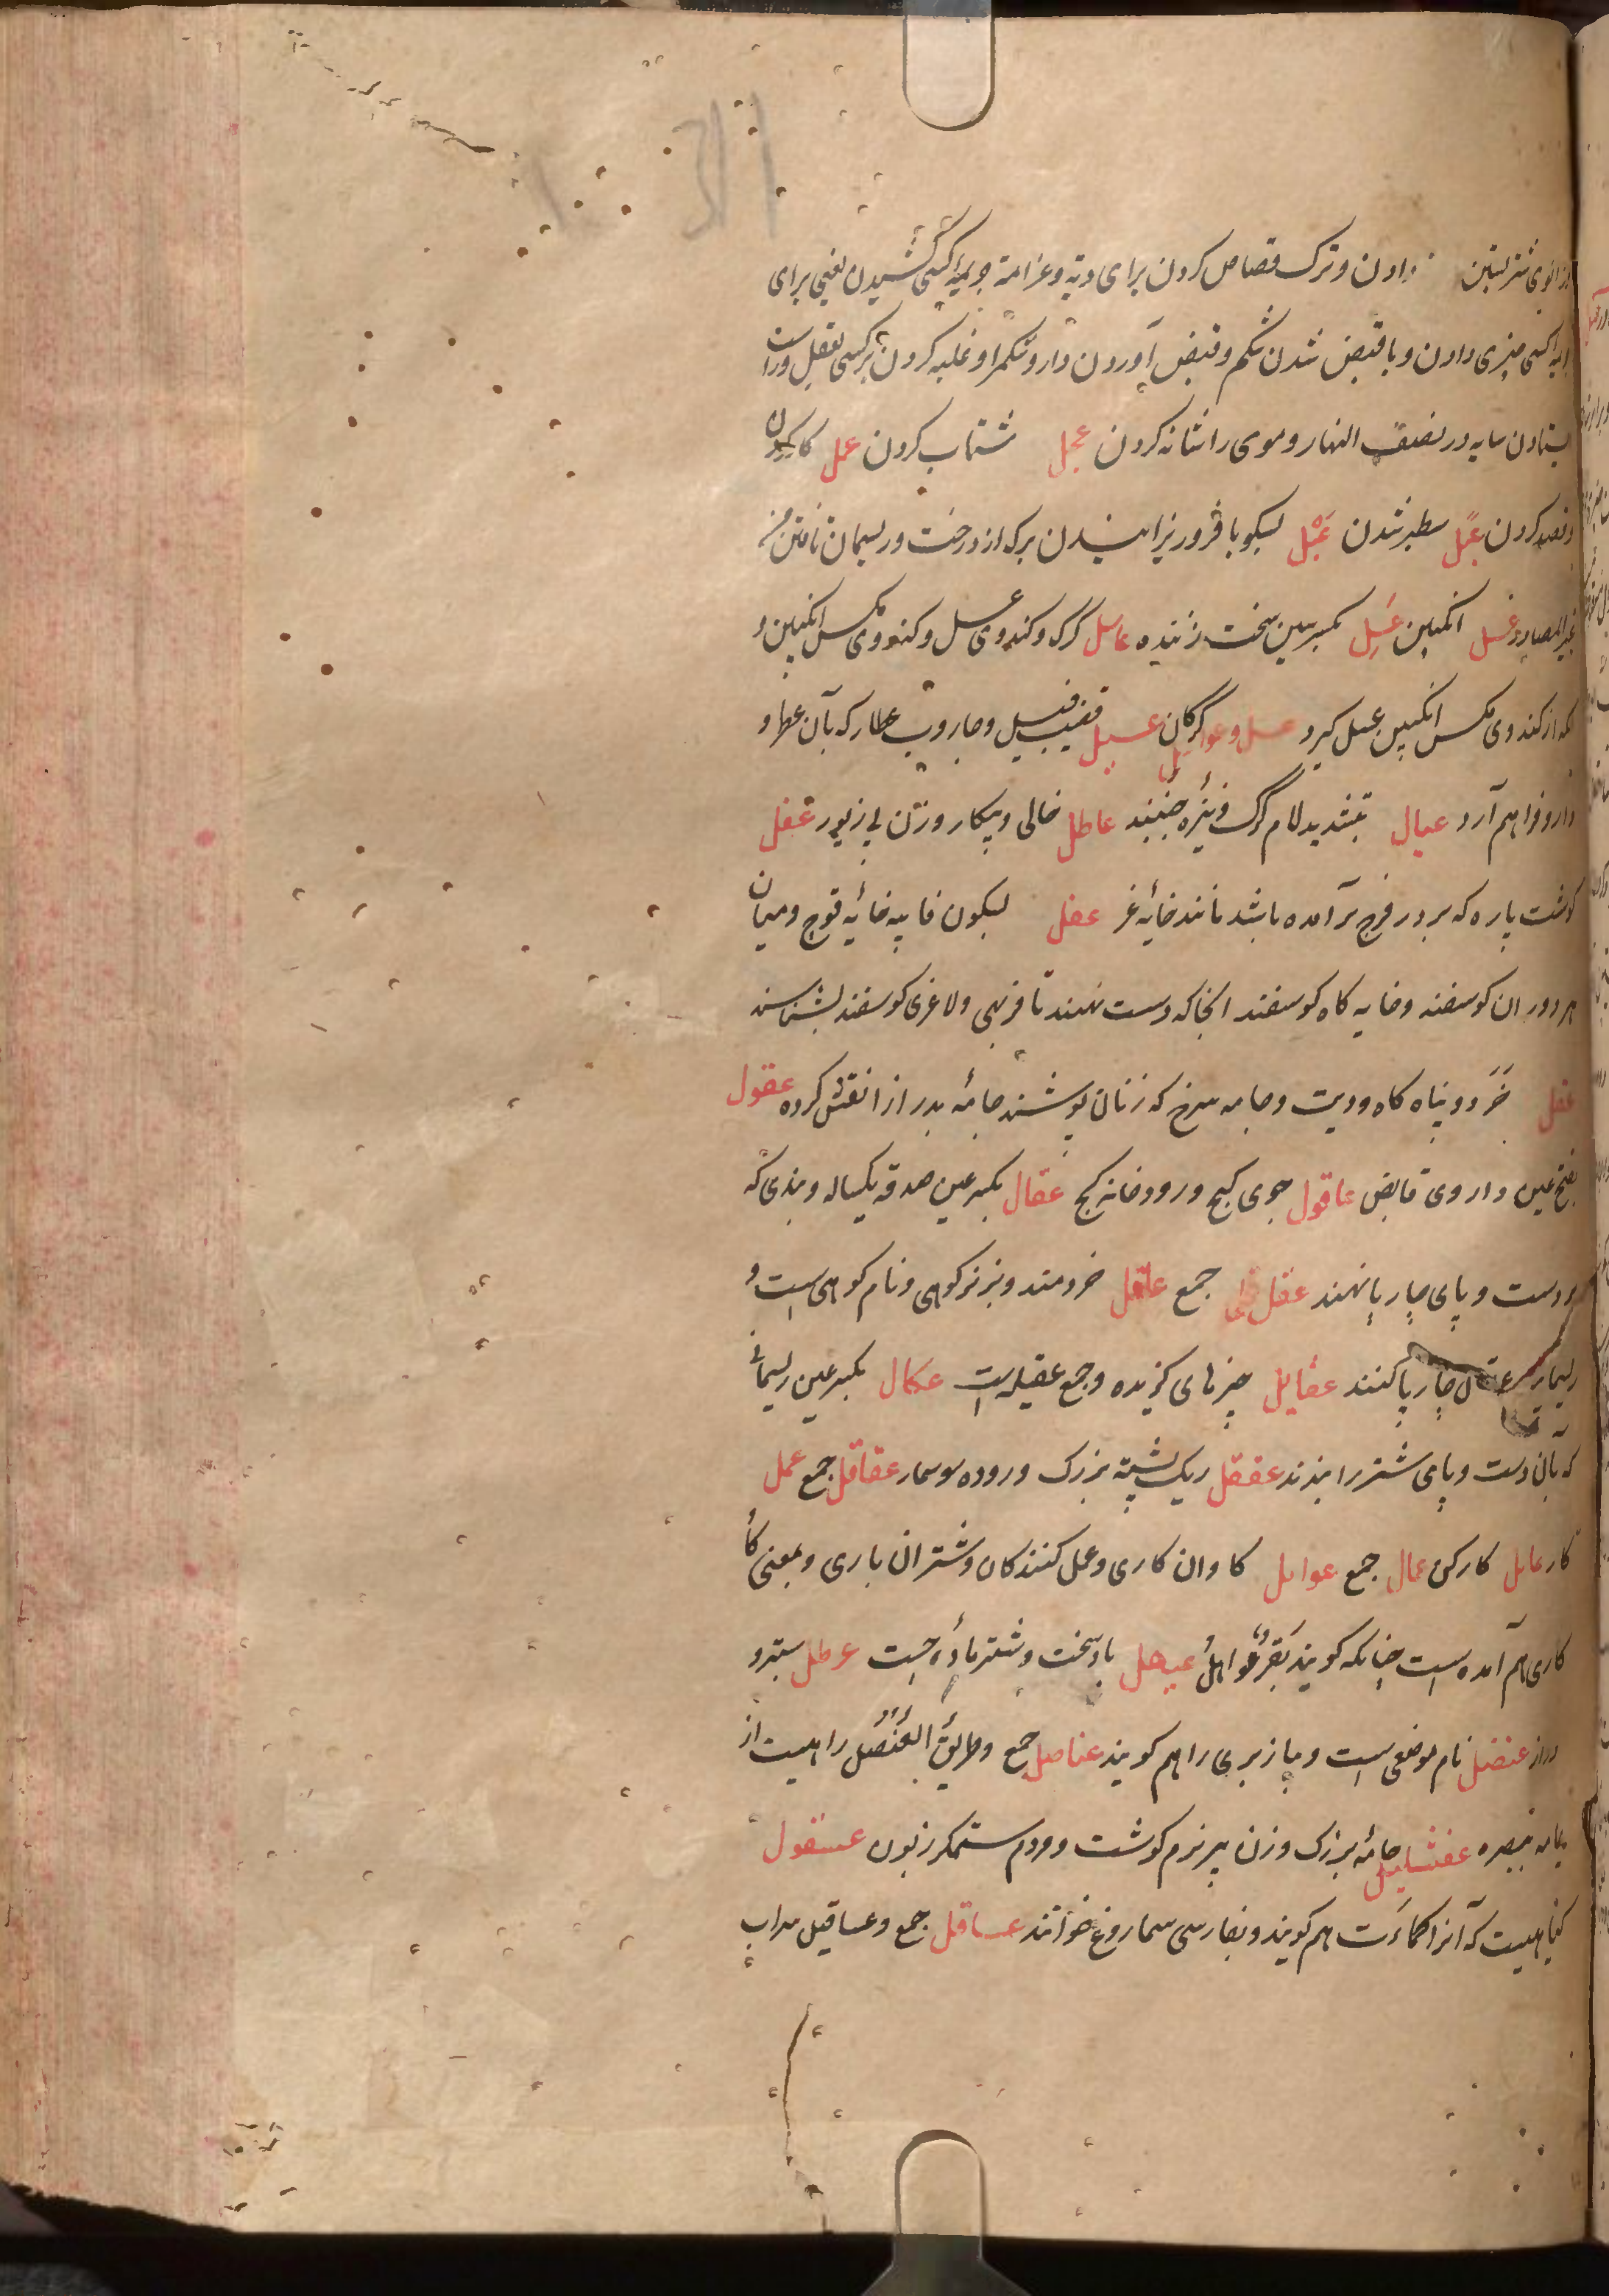 زانوی شتر بستن دادن و ترک قصاص کردن برای دیة و غرامة جریمهٔ کسی کشیدن یعنی برای
کسی چیزی دادن و با قبض شدن شکم و قبض آوردن دارو شکم را و غلبه کردن بر کسی بعقل و راست
ایستادن سایه در نصف النهار و موی را شانه کردن عجل شتاب کردن عمل کار کردن
و قصد کردن عبل سطبر شدن عَبْل بسکون با فرو ریزانیدن برک از درخت و ریسمان تافتن من
غیر المصادر عسل انکبین عَسِل بکسر سین سخت زننده عاسل کرک و کندوی عسل و کندوی مکس انکبین و
آنکه از کندوی مکس انکبین عسل کیرد عسل و عواسل کرکان عسیل قضیب فیل و جاروب عطار که بآن عطر و
دارو فراهم آرد عسال بتشدید لام کرک و نیزهٔ جنبنده عاطل خالی و بیکار و زن بی زیور عفل
کوشت پاره که بر در فرج برآمده باشد مانند خایهٔ غر عفل بسکون فا پیه خایهٔ قوچ و میان
هر دو ران کوسفند و خایه کاه کوسفند آنجا که دست نهند تا فربهی و لاغری کوسفند بشناسند
عقل خرد و پناه کاه و دیت و جامه سرخ که زنان پوشند جامهٔ بدرازا نقش کرده عقول
بفتح عین داروی قابض عاقول جوی کج و رودخانه کج عقال بکسر عین صدقه یکساله و بندی که
بر دست و پای چارپا نهند عقل جمع عاقل خردمند و بز نر کوهی و نام کوهی است و
عقال چارپا کنند عقایل چیزهای کزیده و جمع عقیله است عکال بکسر عین ریسمانی
که بآن دست و پای شتر را بندند عقنقل ریک پشته بزرک و روده سوسمار عقاقل جمع عمل
کار عامل کارکن عمال جمع عوامل کاوان کاری و عمل کنندکان و شتران باری و بمعنی کا
کاری هم آمده است چنانکه کویند بَقَرٌ عَوَامِلُ عیهل باد سخت و شتر مادهٔ چست عرطل ستبر و
دراز عنصل نام موضعی است و پیاز بری را هم کویند عناصل جمع و طریق العُنْصُل راهیست از
یمامه ببصره عفشلیل جامهٔ بزرک و زن پیر نرم کوشت و مردم ستمکر زبون عسقول
کیاهیست که آنرا کماءت هم کویند و بفارسی سماروغ خوانند عساقل جمع و عساقیل سراب